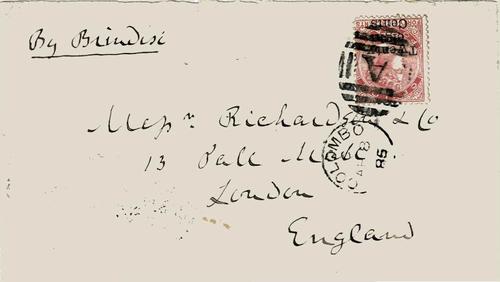 By Brindisi
Twenty
Cents
A
Messrs. Richardson & Co
13 Pall Mall
London
England
COLOMBO
85